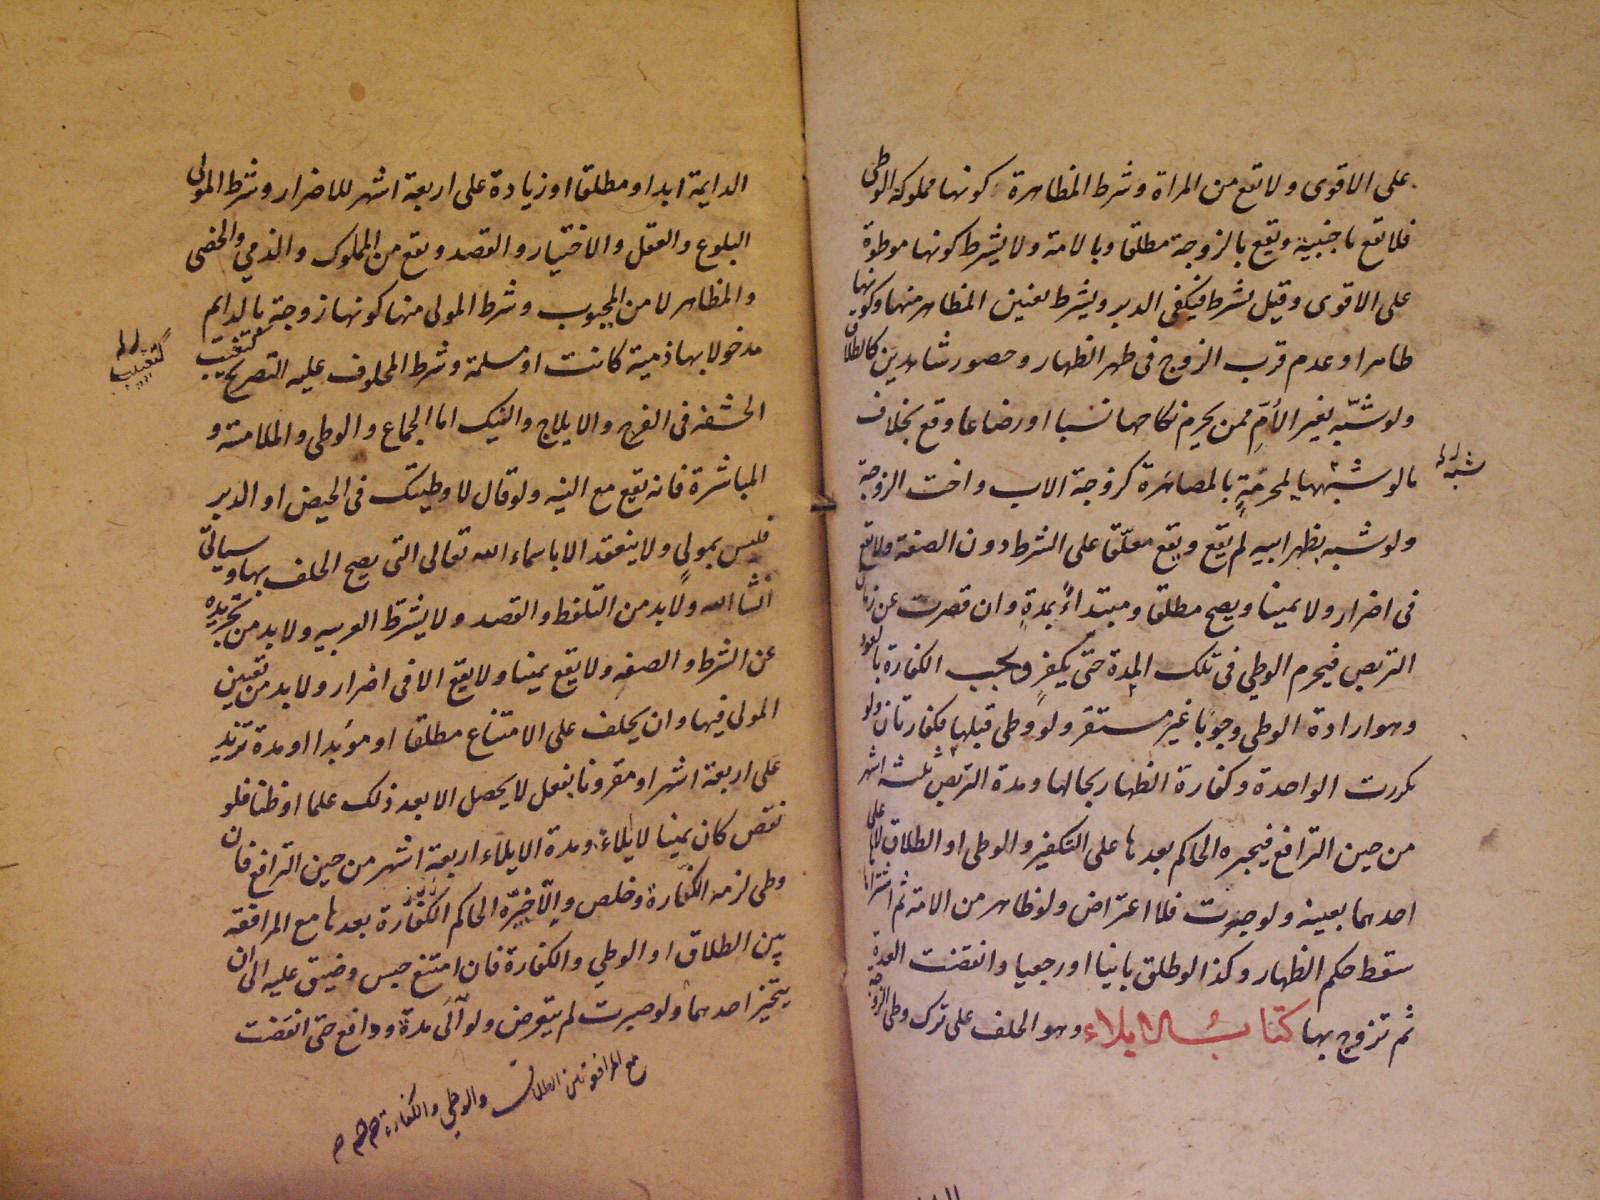 على الاقوى ولا تقع من المراة وشرط المظاهرة كونها مملوكة الوطي
فلا تقع باجنبية وتقع بالزوجة مطلقا وبالامة ولا يشترط كونها موطوة
على الاقوى وقيل يشرط فيكفي الدبر ويشرط تعيين المظاهر منها وكونها
طاهرا وعدم قرب الزوج في طهر الظهار وحضور شاهدين كالطلاق
ولو شبّه بغير الأمّ ممن يحرم نكاحها نسبا او رضاعا وقع بخلاف
مالو شبهها بالمحرمة بالمصاهرة كزوجة الاب واخت الزوجة
شبه
ولو شبه بظهر ابيه لم يقع ويقع معلّقا على الشرط دون الصفة ولا يقع
في اضرار ولا يمينا ويصح مطلقا ومبتداءً بمدة وان قصرت عن زمان
التربص فيحرم الوطي في تلك المدة حتى يكفر وتجب الكفارة بالعود
وهو ارادة الوطي وجوبا غير مستقر ولو وطي قبلها فكفارتان ولو
كررت الواحدة وكفارة الظهار بحالها ومدة التربص ثلثة اشهر
من حين الترافع فيجبره الحاكم بعدها على التكفير والوطي او الطلاق لا على
احدهما بعينه ولو صبرت فلا اعتراض ولو ظاهر من الامة ثم اشتراها
سقط حكم الظهار وكذا لو طلق باينا او رجعيا وانقضت العدة
ثم تزوج بها كتاب الايلاء وهو الحلف على ترك وطي الزوجة
الدايمة ابدا او مطلقا او زيادة على اربعة اشهر للاضرار وشرط المولى
البلوغ والعقل والاختيار والقصد ويقع من المملوك والذمي والخصي
والمظاهر لا من المجبوب وشرط المولى منها كونها زوجة بالدايم
مدخولا بها ذمية كانت او مسلمة وشرط المحلوف عليه التصريح كتغييب
كتغييب
الحشفة في الفرج والايلاج والنيك اما الجماع والوطي والملامسة و
المباشرة فانه يقع مع النيه ولو قال لا وطيتك في الحيض او الدبر
فليس بمولٍ ولا ينعقد الا باسماء الله تعالى التي يصح الحلف بها وسياتي
انشا الله ولا بد من التلفظ والقصد ولا يشترط العربيه ولا بد من تجريده
عن الشرط والصفه ولا يقع يمينا ولا يقع الا في اضرار ولا بد من تعيين
المولى فيها وان يحلف على الامتناع مطلقا او مؤبدا او مدة تزيد
على اربعة اشهر او مقرونا بفعل لا يحصل الا بعد ذلك علما او ظنا فلو
نقص كان يمينا لا ايلاءً ومدة الايلاء اربعة اشهر من حين الترافع فان
وطي لزمه الكفّارة وخلص والّا خيّره الحاكم بعدها مع المرافقه
بين الطلاق او الوطي والكفارة فان امتنع حبس وضيق عليه الى ان
يتخير احدهما ولو صبرت لم يتعرض ولو آلى مدة ودافع حتى انقضت
مع المرافعه بين الطلاق والوطي والكفارة